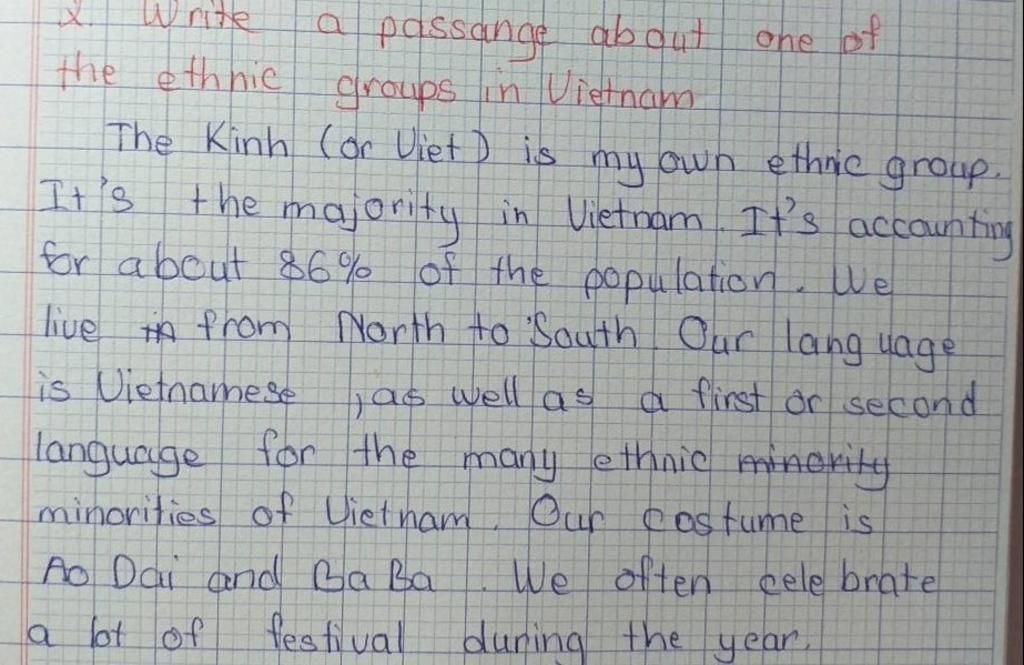 2 Write a passange about one of
the ethnic groups in Vietnam
The Kinh (or Viet) is my own ethnic group.
It's the majority in Vietnam. It's accounting
for about 86% of the population. We
live in from North to South. Our language
is Vietnamese , as well as a first or second
language for the many ethnic minority
minorities of Vietnam. Our costume is
Ao Dai and Ba Ba. We often celebrate
a lot of festival during the year.